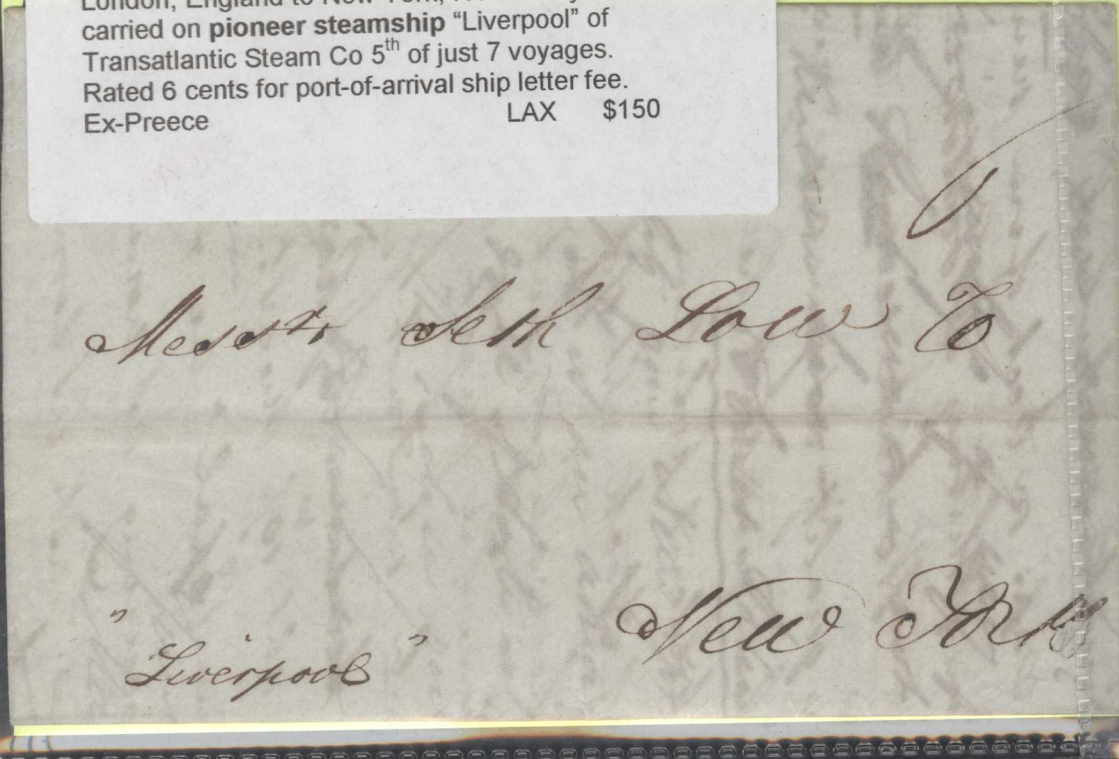 London, England to New York,
carried on pioneer steamship “Liverpool” of
Transatlantic Steam Co 5th of just 7 voyages.
Rated 6 cents for port-of-arrival ship letter fee.
Ex-Preece LAX $150
6
Messrs Seth Low Co
New York
"Liverpool"